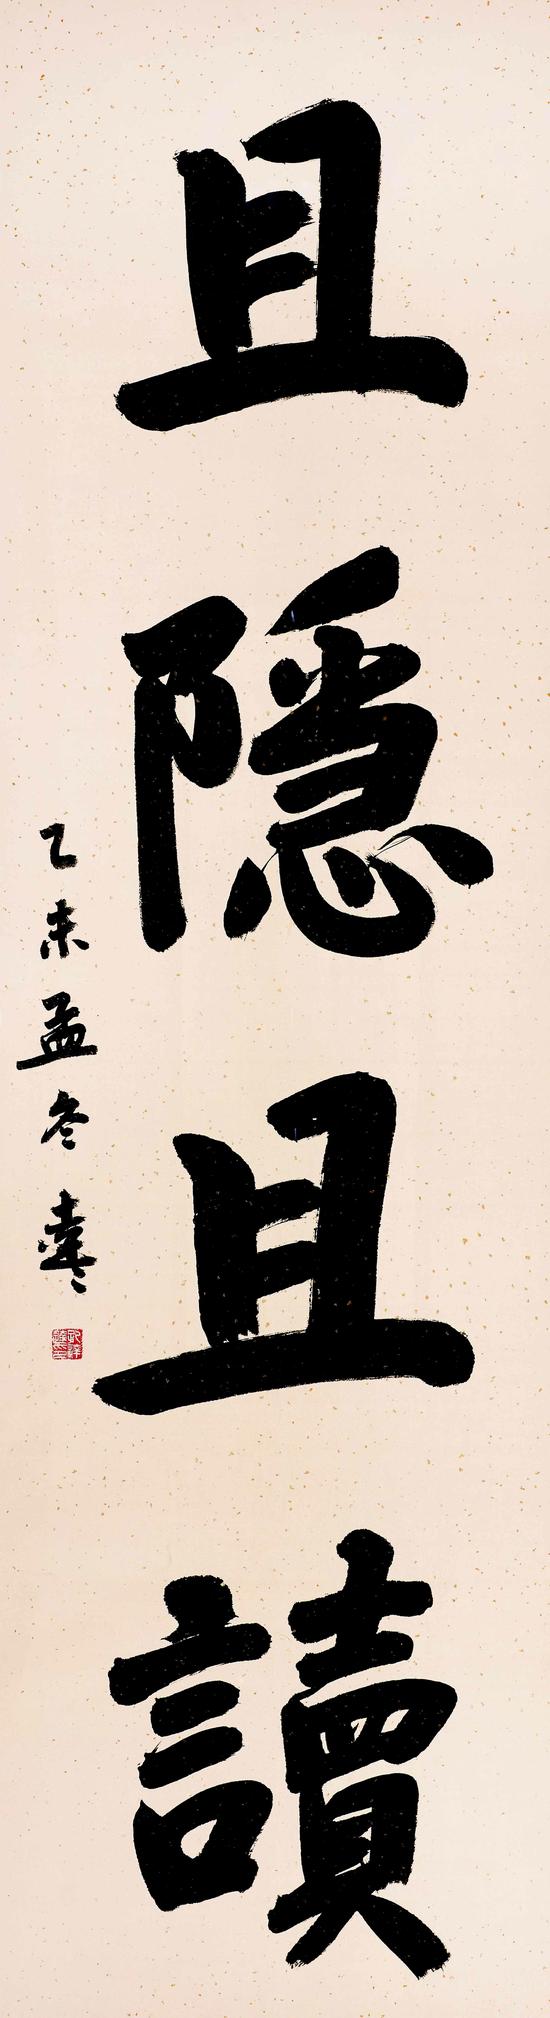 且隱且讀
乙未孟冬